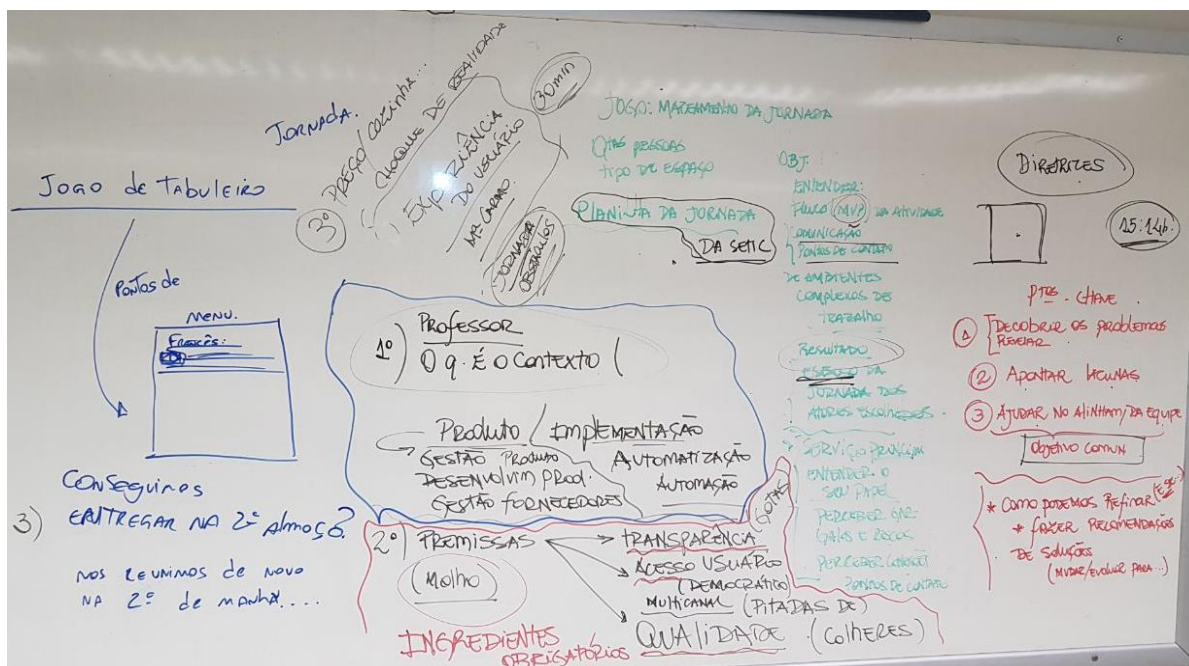 Jogo de Tabuleiro
Pontos de
MENU.
Francês:
Conseguimos
3) ENTREGAR NA 2ª Almoço?
NOS REUNIMOS de NOVO
NA 2ª de MANHÃ....
JORNADA.
3º PREÇO/COZINHA...
CHOQUE DE REALIDADE
EXPERIÊNCIA
DO USUÁRIO
JORNADA
OBSTÁCULOS
30min
1º) PROFESSOR
O q. É O CONTEXTO (
PRODUTO / IMPLEMENTAÇÃO
GESTÃO PRODUTO
DESENVOLVIM PROD.
GESTÃO FORNECEDORES
AUTOMATIZAÇÃO
AUTOMAÇÃO
2º) PREMISSAS
(Molho)
INGREDIENTES
OBRIGATÓRIOS
TRANSPARÊNCIA (GOTAS)
ACESSO USUÁRIO
(DEMOCRÁTICO)
MULTICANAL (PITADAS DE)
QUALIDADE (COLHERES)
JOGO: MAPEAMENTO DA JORNADA
Qtas PESSOAS
tipo DE ESPAÇO
PLANILHA DA JORNADA
DA SETIC
OBJ:
ENTENDER:
FLUXO (MVP) DA ATIVIDADE
COMUNICAÇÃO
PONTOS DE CONTATO
DE AMBIENTES
COMPLEXOS DE
TRABALHO
RESULTADO
ESBOÇO DA
JORNADA DOS
ATORES ESCOLHIDOS.
SERVIÇO PRINCIPAL
ENTENDER O
SEU PAPEL
PERCEBER GAR-
GALOS E
PERCEBER
PONTOS DE CONTATO
DIRETRIZES
15:14h
PTOS. CHAVE
1 DECOBRIR OS PROBLEMAS
2 APONTAR LACUNAS
3 AJUDAR NO ALINHAM/DA EQUIPE
OBJETIVO COMUM
* COMO PODEMOS REFINAR
* FAZER RECOMENDAÇÕES
DE SOLUÇÕES
(MUDAR/EVOLUIR PARA...)